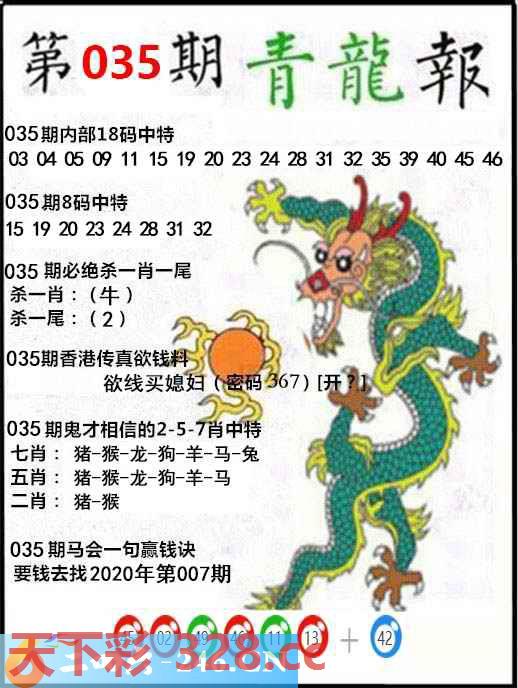 第035期青龍報
035期内部18码中特
03 04 05 09 11 15 19 20 23 24 28 31 32 35 39 40 45 46
035期8码中特
15 19 20 23 24 28 31 32
035 期必绝杀一肖一尾
杀一肖：（牛）
杀一尾：（2）
035期香港传真欲钱料
欲线买媳妇（密码 367）[开？]
035期鬼才相信的2-5-7肖中特
七肖： 猪-猴-龙-狗-羊-马-兔
五肖： 猪-猴-龙-狗-羊-马
二肖： 猪-猴
035期马会一句赢钱诀
要钱去找2020年第007期
02 49 46 11 13 + 42
天下彩-328.cc